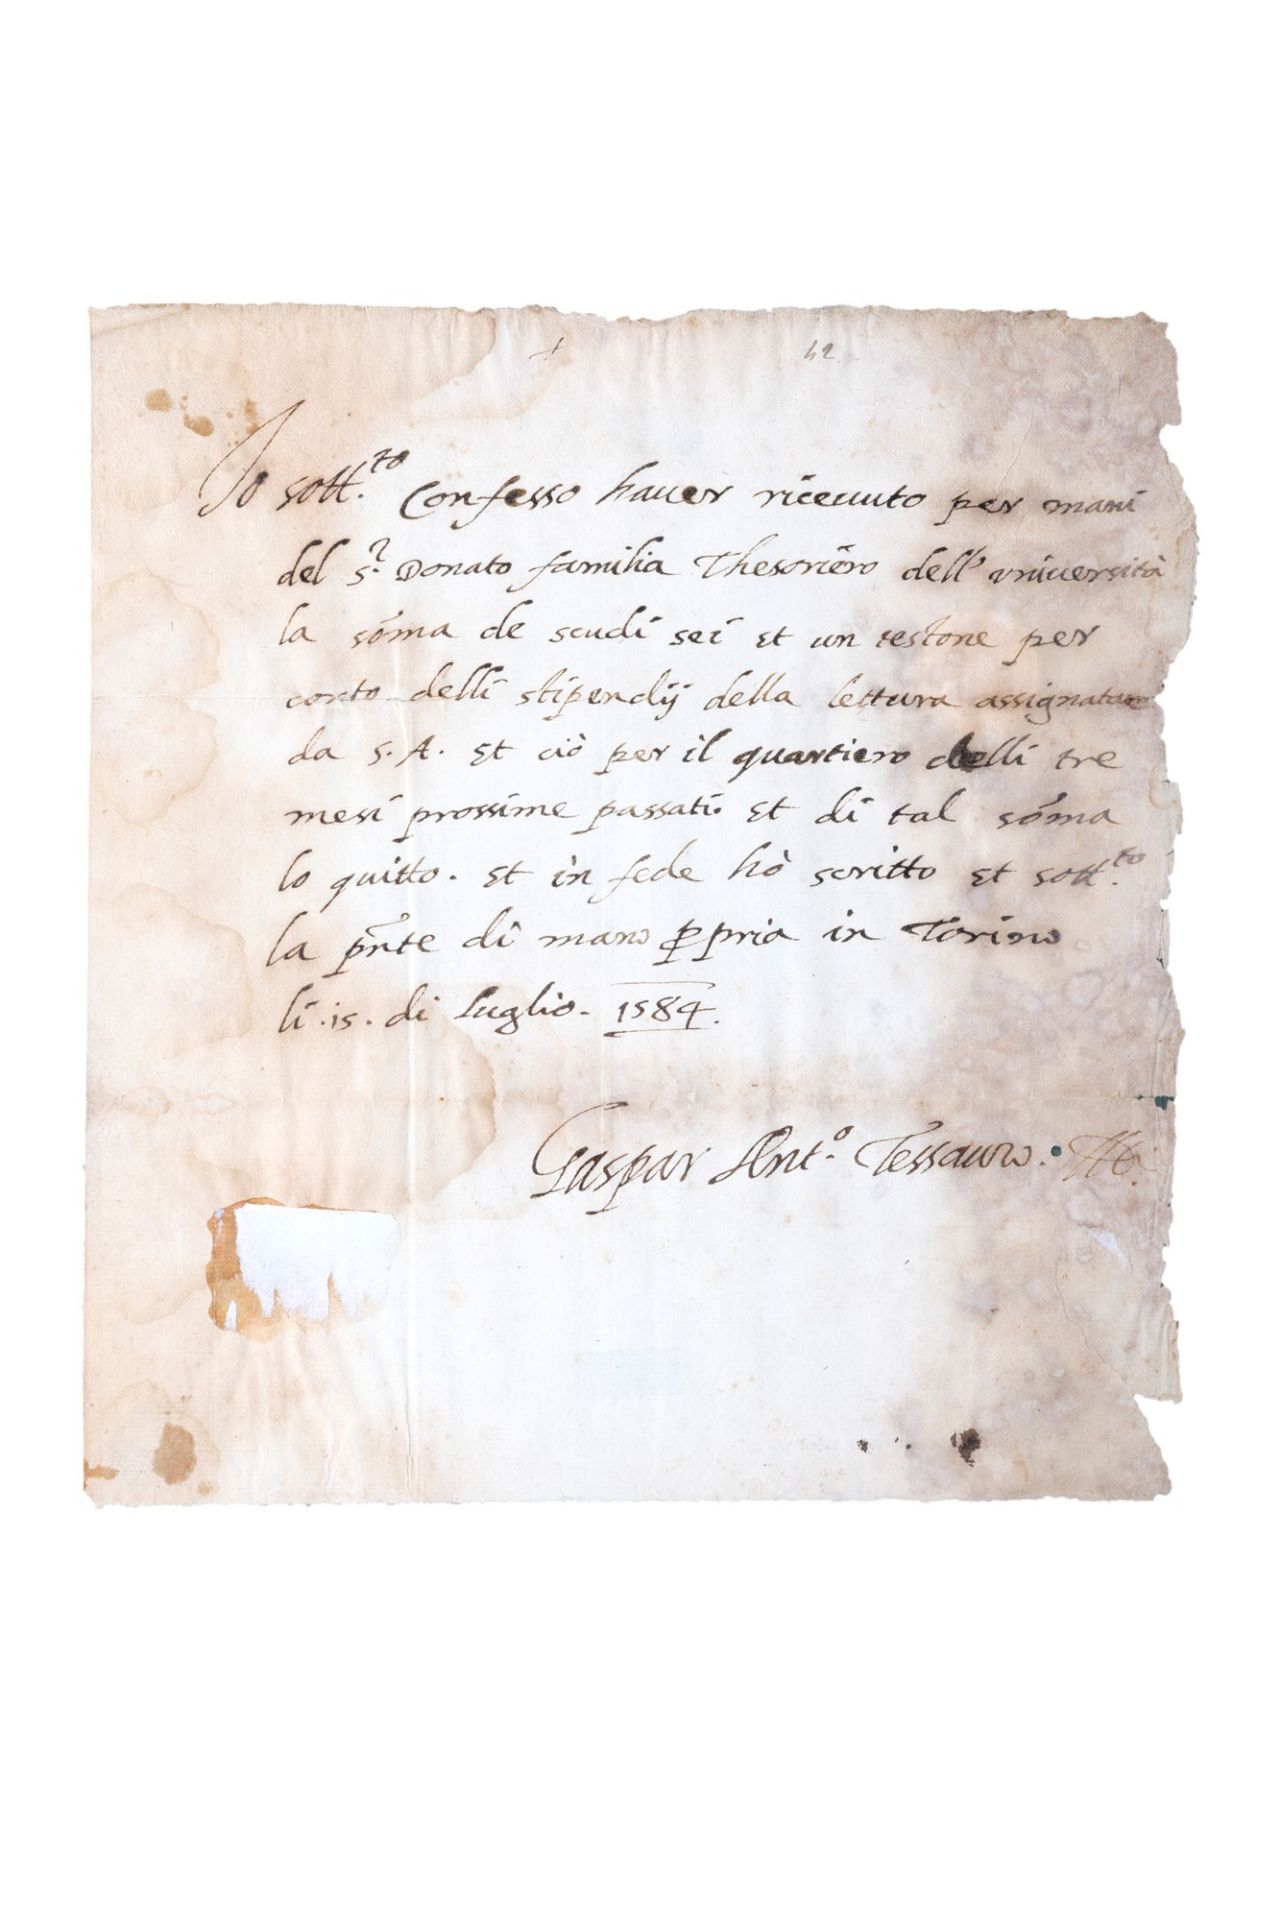 + 42
Io sott.to Confesso hauer riceuuto per mani
del S.r Donato familia Thesoriero dell' vniuersità
la sōma de scudi sei et un testone per
conto delli stipendij della lettura assignatami
da S. A. et ciò per il quartiero delli tre
mesi prossime passati. et di tal sōma
lo quitto. et in fede hò scritto et sott.to
la pn̄te di mano ꝓpria in Torino
li .15. di Luglio. 1584.
Gaspar Ant.o Tessauro.